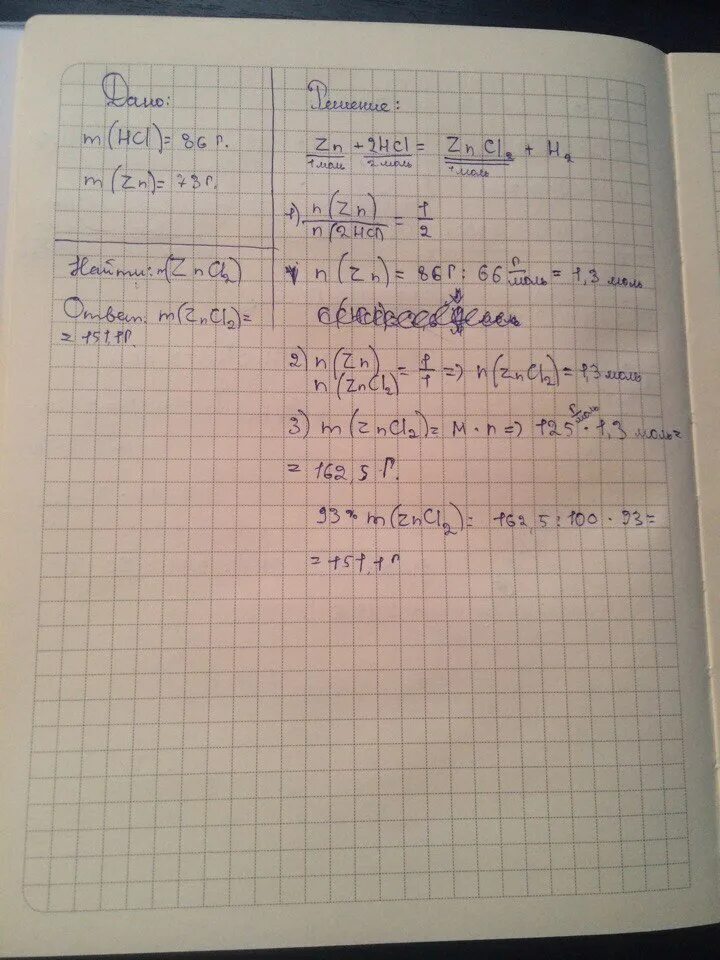 Дано:
m(HCl)= 86 г.
m(Zn)= 73 г.
Найти: m(ZnCl₂)
Ответ: m(ZnCl₂)=
= 151,1 г
Решение:
Zn + 2HCl = ZnCl₂ + H₂
1 моль 2 моль 1 моль
1) n(Zn) / n(2HCl) = 1/2
n(Zn) = 86 г : 66 г/моль = 1,3 моль
2) n(Zn) / n(ZnCl₂) = 1/1 => n(ZnCl₂) = 1,3 моль
3) m(ZnCl₂) = M · n => 125 г/моль · 1,3 моль =
= 162,5 г.
93% m(ZnCl₂) = 162,5 : 100 · 93 =
= 151,1 г